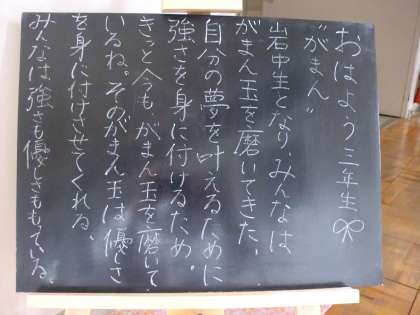 おはよう三年生
"がまん"
岩中生となり、みんなは
がまん玉を磨いてきた。
自分の夢を叶えるために
強さを身に付けるため。
きっと今も、がまん玉を磨いて
いるね。そのがまん玉は優しさ
を身に付けさせてくれる。
みんなは強さも優しさももっている。